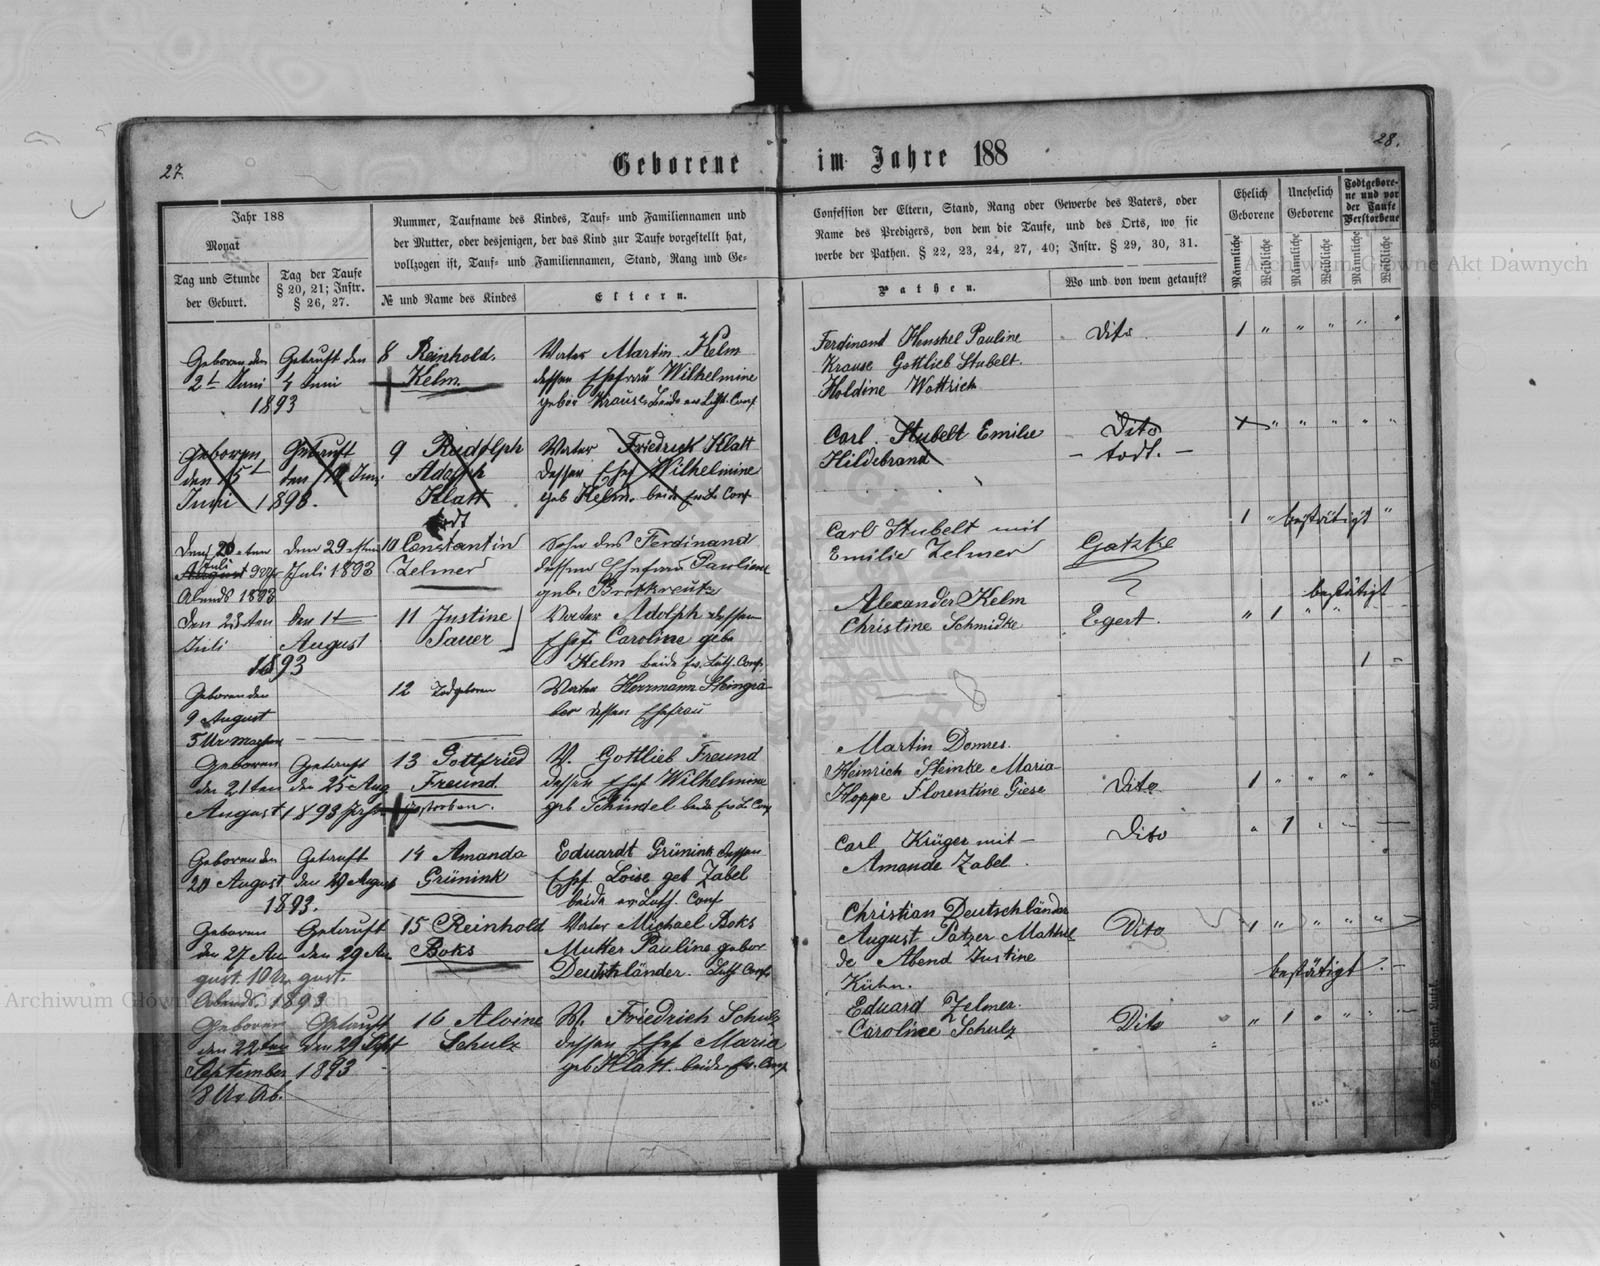 27.
28.
Geborene im Jahre 188
Jahr 188
Monat
Tag und Stunde
der Geburt.
Tag der Taufe
§ 20, 21; Instr.
§ 26, 27.
Nummer, Taufname des Kindes, Tauf- und Familiennamen und
der Mutter, oder desjenigen, der das Kind zur Taufe vorgestellt hat,
vollzogen ist, Tauf- und Familiennamen, Stand, Rang und Ge-
№ und Name des Kindes
Eltern.
Confession der Eltern, Stand, Rang oder Gewerbe des Vaters, oder
Name des Predigers, von dem die Taufe, und des Orts, wo sie
werbe der Pathen. § 22, 23, 24, 27, 40; Instr. § 29, 30, 31.
Pathen.
Wo und von wem getauft?
Ehelich
Geborene
Unehelich
Geborene
Todtgebore-
ne und vor
der Taufe
Verstorbene
Männliche
Weibliche
Männliche
Weibliche
Männliche
Weibliche
Geboren den
2t Juni
1893
Getauft den
4 Juni
8 Reinhold.
Kelm.
Vater Martin Kelm
dessen Ehefrau Wilhelmine
gebor Krause beide ev Luth. Conf
Ferdinant Henshel Pauline
Krause Gottlieb Stubelt.
Holdine Wottrich
Dito
1 " " " " "
Geboren
den 15t
Juni 1893.
Getauft
den Juni
9 Rudolph
Adolph
Klatt
todt
Vater Friedrich Klatt
Dessen Ehef Wilhelmine
geb Kelm. beide Ev L. Conf
Carl Stubelt Emilie
Hildebrand
Dito
- todt. -
" " " " "
Den 20 eten
Juli
August 9 Uhr
Abends 1893
Dem 29 sten
Juli 1893
10 Constantin
Zelmer
Sohn des Ferdinand
dessen Ehefrau Pauline
geb. Brotkreutz
Carl Stubelt mit
Emilie Zelmer
Gatzke
1 " bestätigt "
Den 23ten
Juli
1893
den 1t
August
11 Justine
Sauer
Vater Adolph dessen
Ehef. Caroline geb.
Kelm beide Ev. Luth. Conf.
Alexander Kelm
Christine Schmidke
Egert.
bestätigt
" 1 " "
Geboren den
9 August
5 Ur
12 Todgeboren
Vater Herrmann Steingrä-
ber dessen Ehefrau
1 "
Geboren
den 21 ten
August 1893
Getauft
den 25 Aug
13 Gottfried
Freund.
gestorben.
V. Gottlieb Freund
dessen Ehef Wilhelmine
geb Schündel beide Ev L Conf
Martin Domres.
Heinrich Steinke Maria
Hoppe Florentine Giese
Dito
1 " " " "
Geboren den
20 August
1893.
Getauft
den 29 August
14 Amanda
Grünink
Eduardt Grünink dessen
Ehef. Loise geb Zabel
beide ev Luth. Conf
Carl Krüger mit -
Amande Zabel.
Dito
" 1
Geboren
den 27. Au
gust. 10 Ur
Abends. 1893
Getauft
den 29 Au
gust.
15 Reinhold
Boks
Vater Michael Boks
Mutter Pauline gebor
Deutschländer. Luth Conf.
Christian Deutschländer
August Patzer Mathil
de Abend Justine
Kühn.
Dito
1 " " " "
bestätigt. -
Geboren
den 22 ten
September 1893
8 Ur Ab.
Getauft
den 29 Sept
16 Alvine
Schulz
V. Friedrich Schulz
dessen Ehef Maria
geb Klatt. beide Ev. Conf
Eduard Zelmer.
Caroline Schulz
Dito
" 1 " " "
Archiwum Główne Akt Dawnych
Archiwum Główne Akt Dawnych